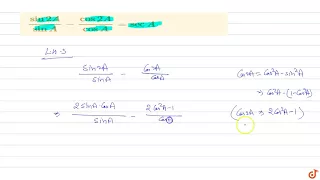 sin 2A / sin A − cos 2A / cos A = sec A
L.H.S
sin2A / sinA − Cos2A / CosA
⇒ 2 sinA CosA / sinA − 2Cos²A-1 / Cos
Cos2A = Cos²A - sin²A
⇒ Cos²A - (1-Cos²A)
(Cos2A ⇒ 2Cos²A-1)